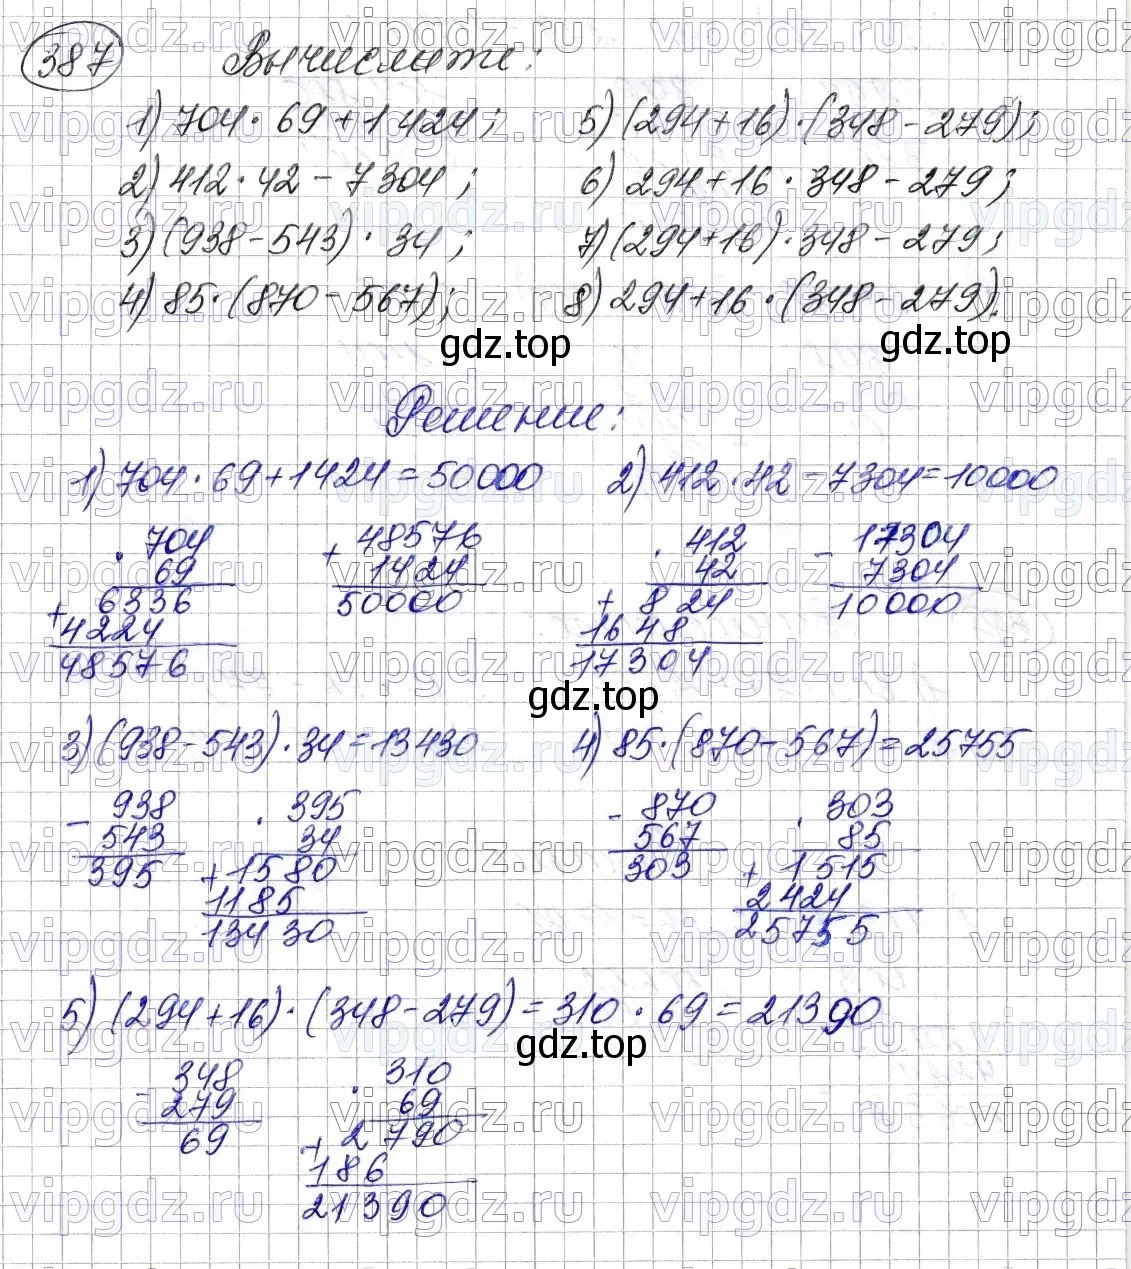 387 Вычислите:
1) 704 · 69 + 1 424; 5) (294 + 16) · (348 - 279);
2) 412 · 42 - 7 304; 6) 294 + 16 · 348 - 279;
3) (938 - 543) · 34; 7) (294 + 16) · 348 - 279;
4) 85 · (870 - 567); 8) 294 + 16 · (348 - 279).
gdz.top gdz.top
Решение:
1) 704 · 69 + 1424 = 50000 2) 412 · 42 - 7304 = 10000
· 704 + 48576 · 412 - 17304
69 1424 42 7304
6336 50000 + 824 10000
+ 4224 1648
48576 17304
gdz.top
3) (938 - 543) · 34 = 13430 4) 85 · (870 - 567) = 25755
- 938 · 395 - 870 · 303
543 34 567 85
395 + 1580 303 + 1515
1185 2424
13430 25755
5) (294 + 16) · (348 - 279) = 310 · 69 = 21390
gdz.top
- 348 · 310
279 69
69 + 2790
186
21390
vipgdz.ru